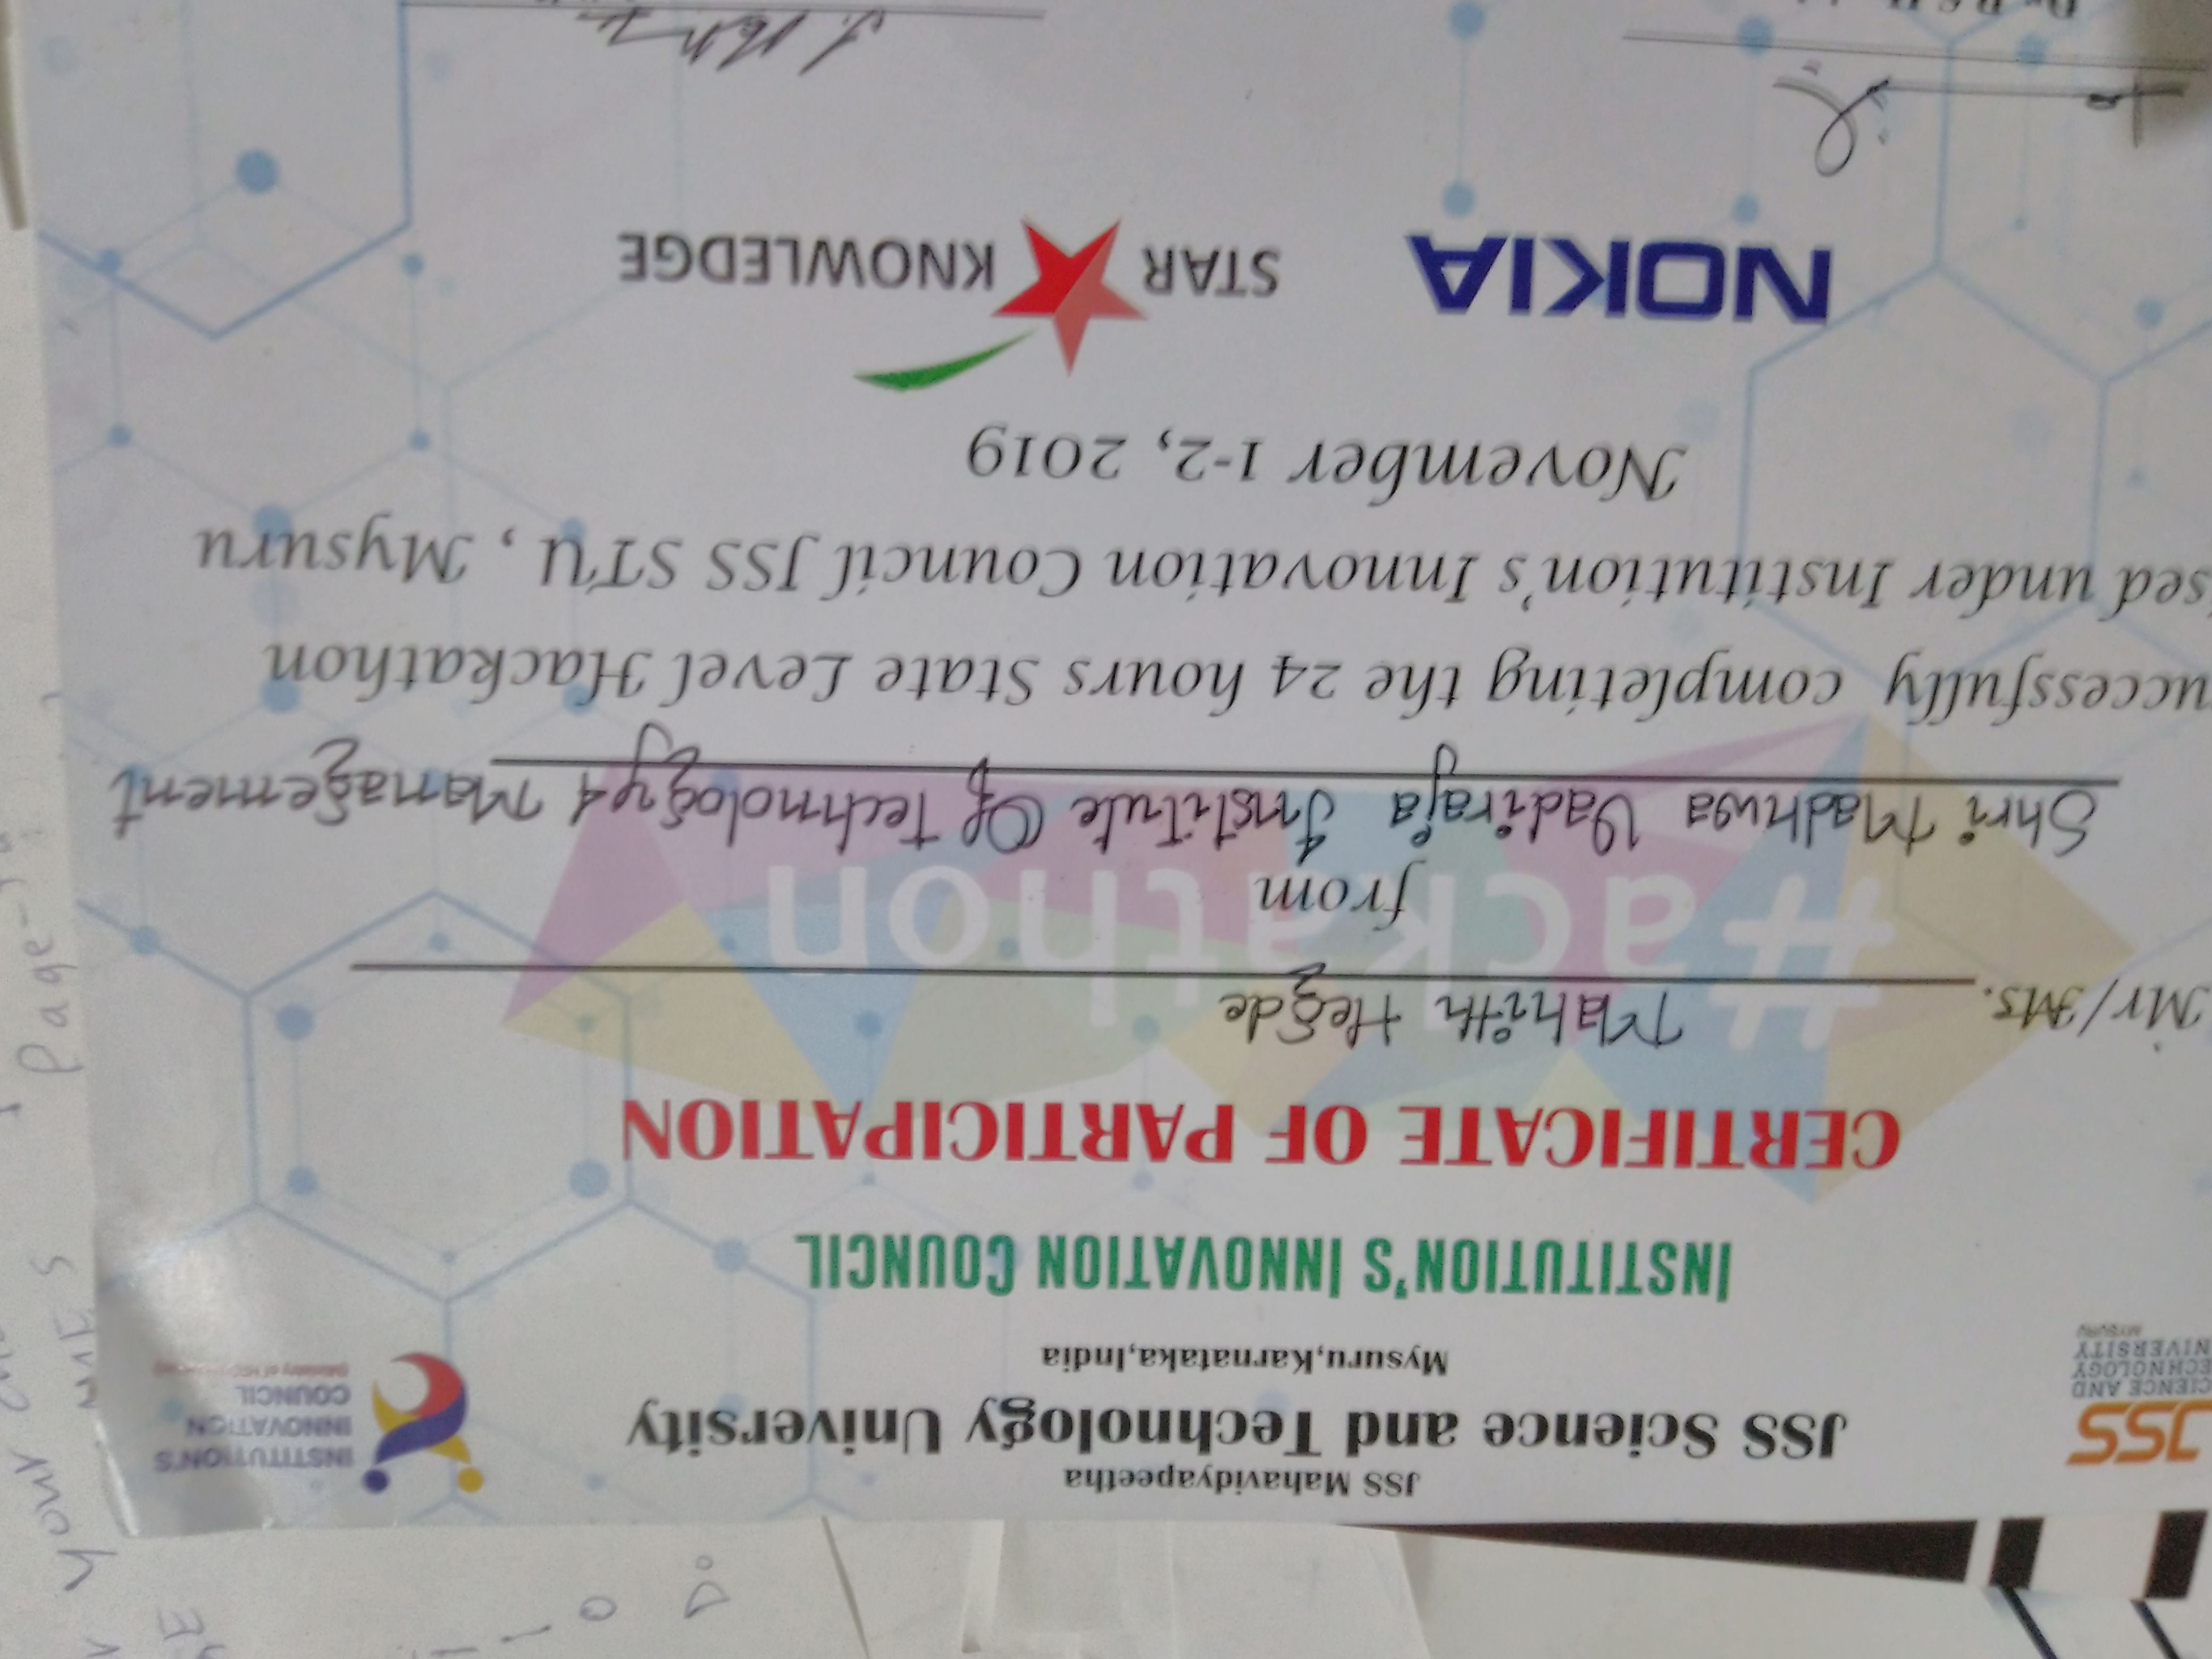 JSS
SCIENCE AND
TECHNOLOGY
UNIVERSITY
MYSURU
JSS Mahavidyapeetha
JSS Science and Technology University
Mysuru,Karnataka,India
INSTITUTION'S
INNOVATION
COUNCIL
INSTITUTION'S INNOVATION COUNCIL
CERTIFICATE OF PARTICIPATION
Mr/Ms. Mahith Hegde
#ackathon
from
Shri Madhwa Vadiraja Institute Of Technology & Management
uccessfully completing the 24 hours State Level Hackathon
ised under Institution's Innovation Council JSS STU , Mysuru
November 1-2, 2019
NOKIA
STAR KNOWLEDGE
your
Page-